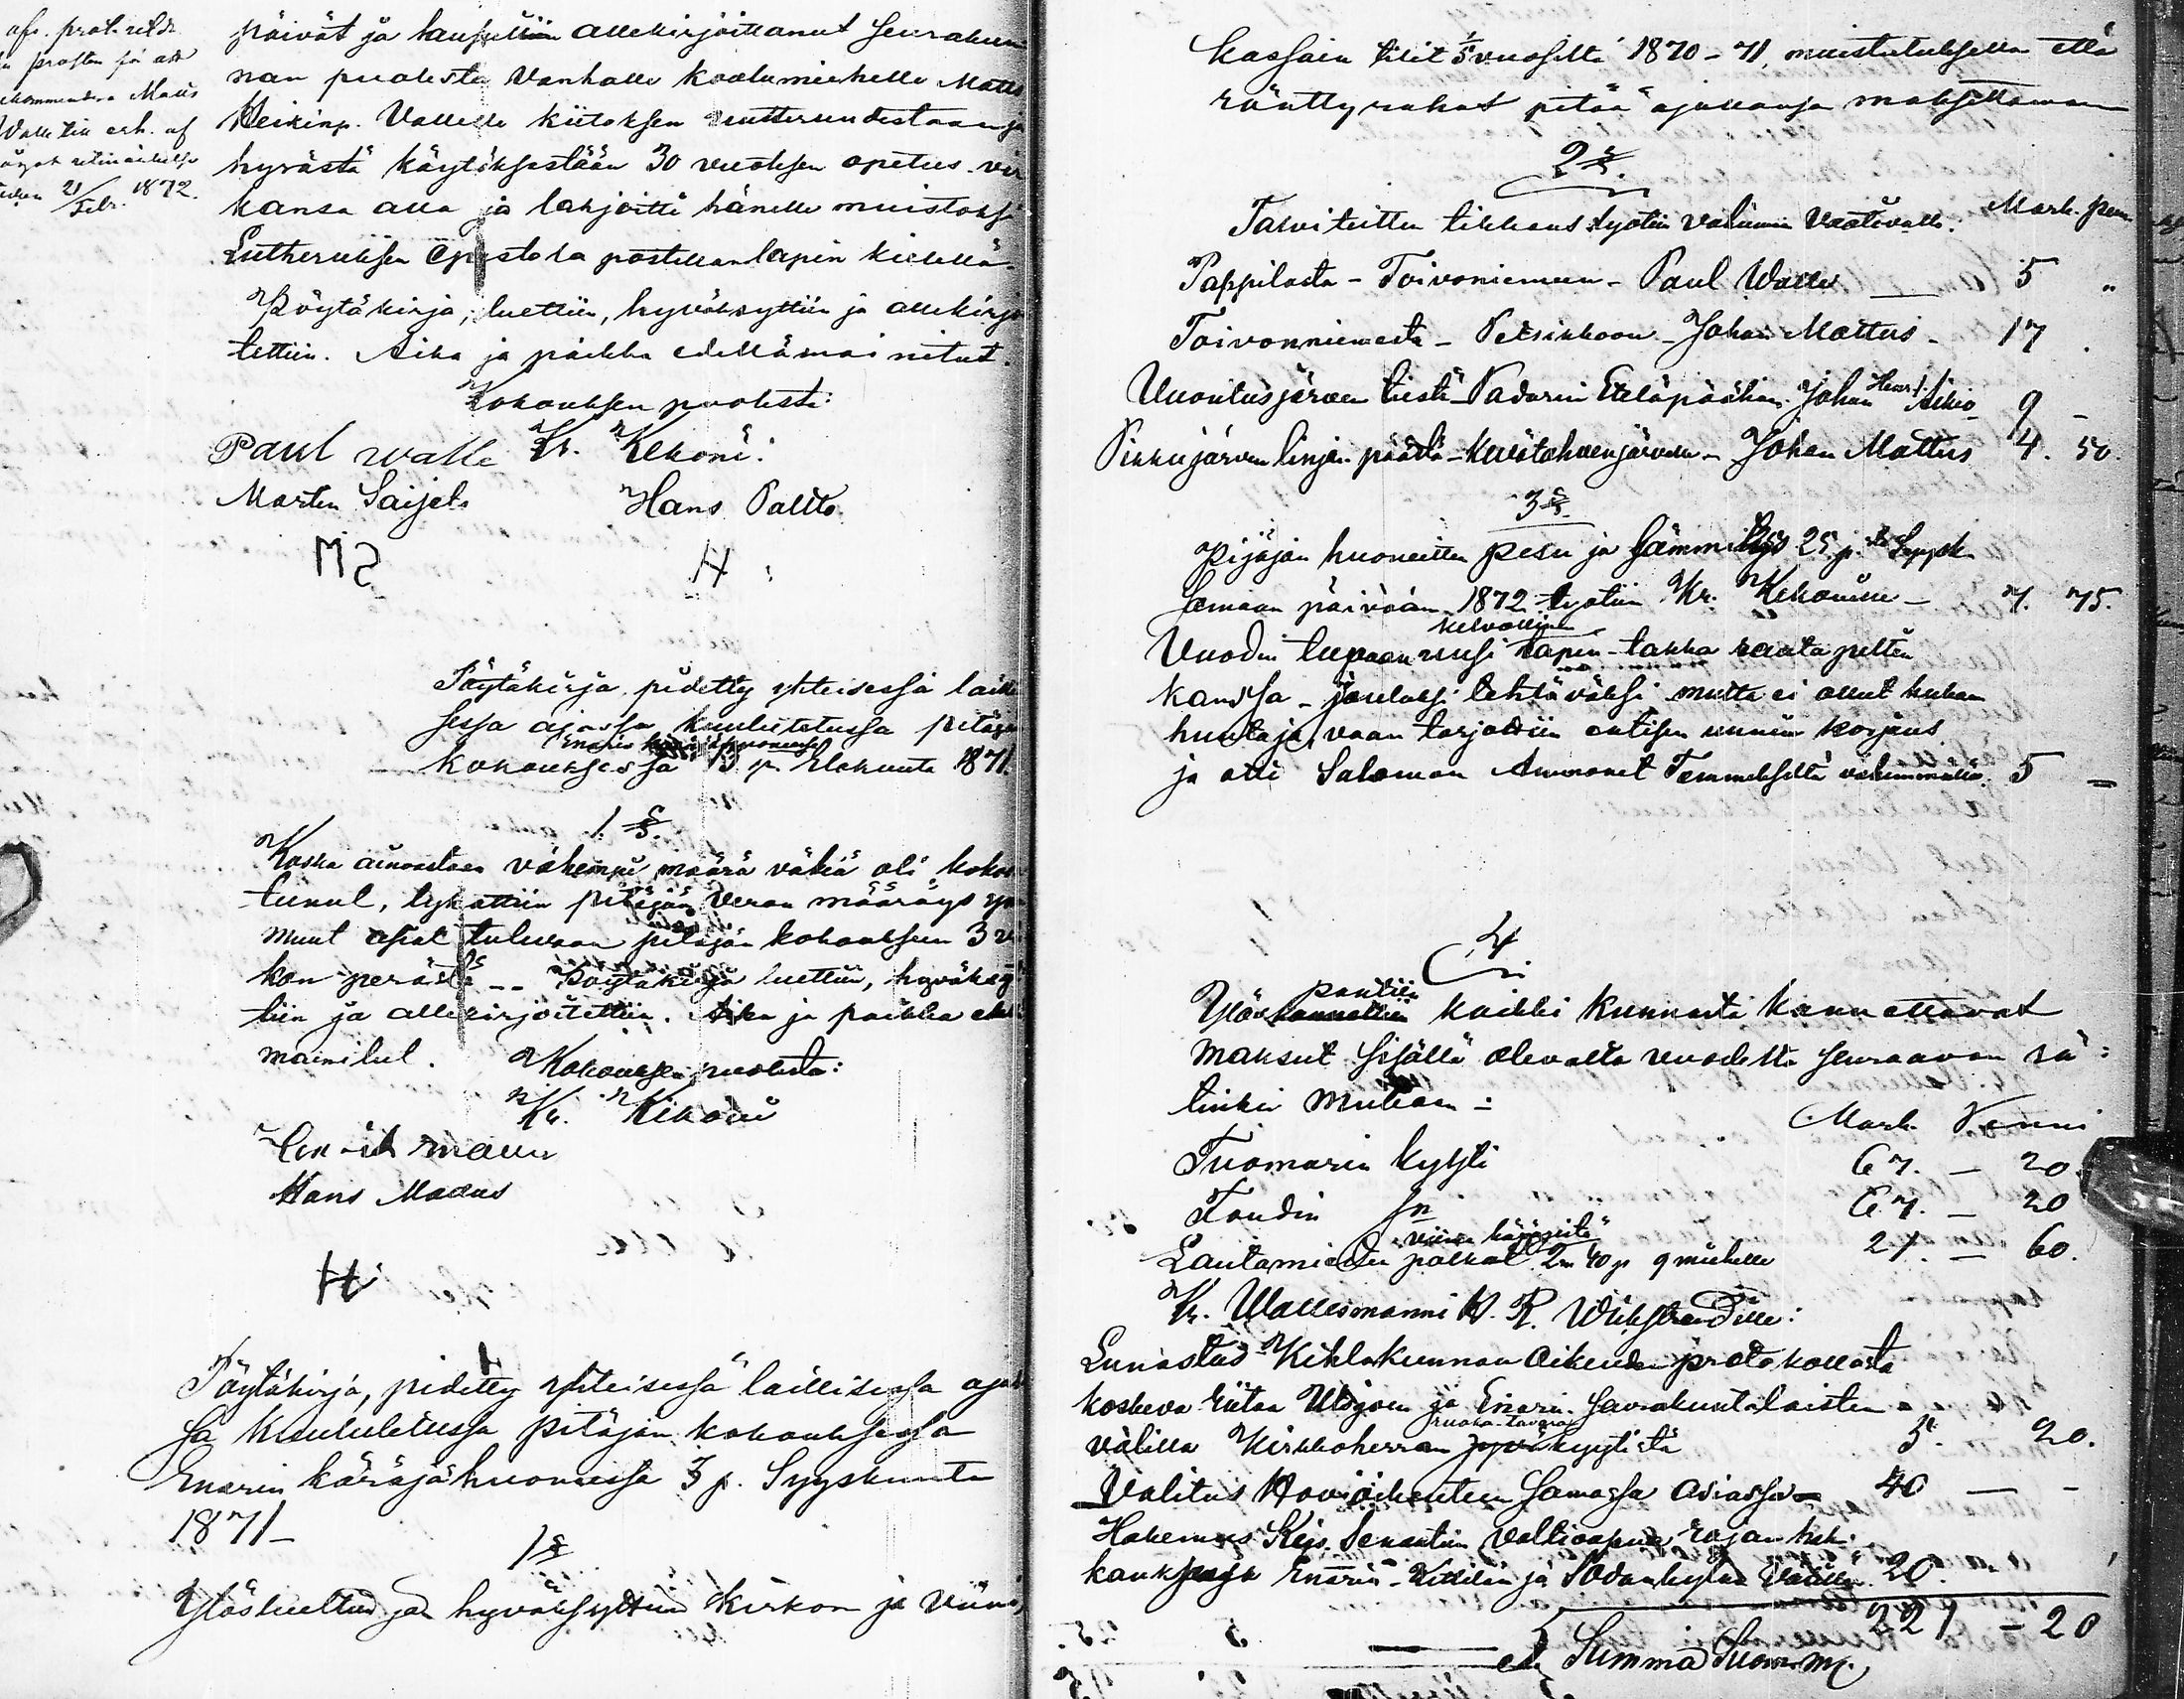 afs. prot. utdr.
Matts
Walle
21/Febr. 1872.
päivät ja allekirjoittanut seurakun
nan puolesta Vanhalle koulumiehelle Matts
Heikinp. Vallelle kiitoksen ja
hyvästä käytöksestään 30 vuoksen opetus-vir
kansa alla ja lahjoitti hänelle muistoksi
Lutheruksen Epistola postillan lapin kielellä.
Pöytäkirja, luettiin, hyväksyttiin ja allekirjo
tettiin. Aika ja paikka edellämainitut.
Kokouksen puolesta:
Paul walle Kr. Kekoni.
Marten Saijets Hans Paltto
MS H
Pöytäkirja pidetty yhteisessä lailli
sessa ajassa kuulutetussa pitäjän
Enaris
kokouksessa 13 p. Elokuuta 1871.
1 §.
Koska ainoastaan vähempi määrä väkiä oli koko
tunut, lykättiin pitäjän veron määräys
muut asiat tulevaan pitäjän kokoukseen 3 vi
kon perästä -- Pöytäkirja luettiin, hyväksy
tiin ja allekirjoitettiin. Aika ja paikka
mainitut. Kokouksen puolesta:
Kr. Kekoni
Hans Mattus
H
Pöytäkirja, pidetty yhteisessä laillisessa ajas
sa kuulutetussa pitäjän kokouksessa
Enarin käräjähuoneessa 3 p. Syyskuuta
1871-
1 §
Ylösluettiin ja hyväksyttiin kirkon ja viini
kassain tilit 1/5 vuosilta 1870-71, muistutuksella että
ränttyrahat pitää ajallansa maksettaman
2 §.
Talviteitten tikkaus lyötiin vähimin vaativalle. Mark. pen.
Pappilasta - Toivoniemeen - Paul Walle — 5 "
Toivonniemestä - Petsikkoon - Johan Mattus - 17 .
Vuontusjärven tiestä - Padarin Eteläpäähän. Johan Henr. Aikio 9 -
Pikkujärven linjan päästä - - Johan Mattus 4. 50.
3 §.
Pijäjän huoneitten pesu ja lämmitys 25 p. Syysk.
samaan päivään 1872 lyötiin Kr. Kekoniselle - 7. 75.
kelvollinen
Vuodin tupaan uusi tapin-takka rauta peltin
kanssa - jouluksi tehtäväksi mutta ei ollut kukaan
huutaja, vaan tarjottiin entisen uunin korjaus
ja otti Salomon Ammonet Temmekseltä vähimmällä. 5 -
4
pantiin
Ylös kannettiin kaikki kunnasta kannettavat
maksut sisällä olevalta vuodelta seuraavan rä:
tinkin mukaan :
Mark. Penni
Tuomarin kyyti 67. — 20
Foudin Sn 67. — 20
viime käräjistä
Lautamiesten palkat 2m 40p 9 miehelle 21. — 60.
Kr. Wallesmanni H. R. Wikstrandille:
Lunastus Kihlakunnan oikeuden protokollasta
koskeva riitaa Utsjoen ja Enarin seurakuntalaisten
ruoka-tavara
välillä Kirkkoherran kyytistä 5. 20.
Valitus Hovioikeuteen samassa asiassa 40 — -
Hakemus Keis. Senaatiin valtioapua rajan
Enarin - Kittilän ja Sodankylän välillä. 20.
221 - 20
Summa Suom. m.